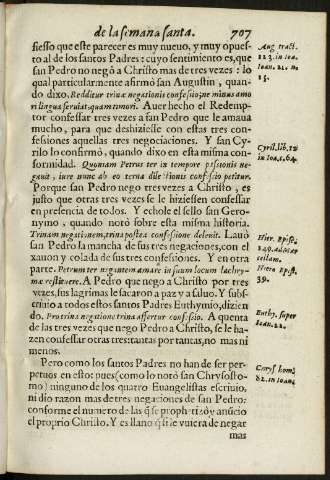 de la semana santa. 707
fiesso que este parecer es muy nueuo, y muy opues-
to al de los santos Padres: cuyo sentimiento es, que
san Pedro no negò a Christo mas de tres vezes: lo
qual particularmente afirmò san Augustin, quan-
do dixo. Redditur trina negationi confessio; ne minus amo
ri lingua seruiat quam timori. Auer hecho el Redemp-
tor confessar tres vezes a san Pedro que le amaua
mucho, para que deshiziesse con estas tres con-
fesiones aquellas tres negaciones. Y san Cy-
rilo lo confirmò, quando dixo en esta misma con-
formidad. Quoniam Petrus ter in tempore passionis ne-
gauit, iure nunc ab eo terna dilectionis confessio petitur.
Porque san Pedro nego tres vezes a Christo, es
justo que otras tres vezes se le hiziessen confessar
en presencia de todos. Y echole el sello san Gero-
nymo, quando notò sobre esta misma historia.
Trinam negationem, trina postea confessione deleuit. Lauò
san Pedro la mancha de sus tres negaciones, con el
xauon y colada de sus tres confessiones. Y en otra
parte. Petrum ter negantem amare in suum locum lachry-
mæ restituere. A Pedro que nego a Christo por tres
vezes, sus lagrimas le sacaron a paz y a saluo. Y subs-
criuio a todos estos santos Padres Euthymio, dizien
do. Pro trina negatione trina affertur confessio. A quenta
de las tres vezes que nego Pedro a Christo, se le ha-
zen confessar otras tres: tantas por tantas, no mas ni
menos.
Pero como los santos Padres no han de ser per-
petuos en esto: pues (como lo notò san Chrysosto-
mo) ninguno de los quatro Euangelistas escriuio,
ni dio razon mas de tres negaciones de san Pedro:
conforme el numero de las q̃ se prophetizò y anũcio
el proprio Christo. Y es llano q̃ si le vuiera de negar
mas
Aug. tract.
123. in Ioa.
Ioan. 21. n.
15.
Cyril. lib. 12
in Ioa. c. 64.
Hier. epist.
Hiero. epist.
39.
Euthy. super
Ioan. 21.
Chrys. hom.
82. in Ioan.